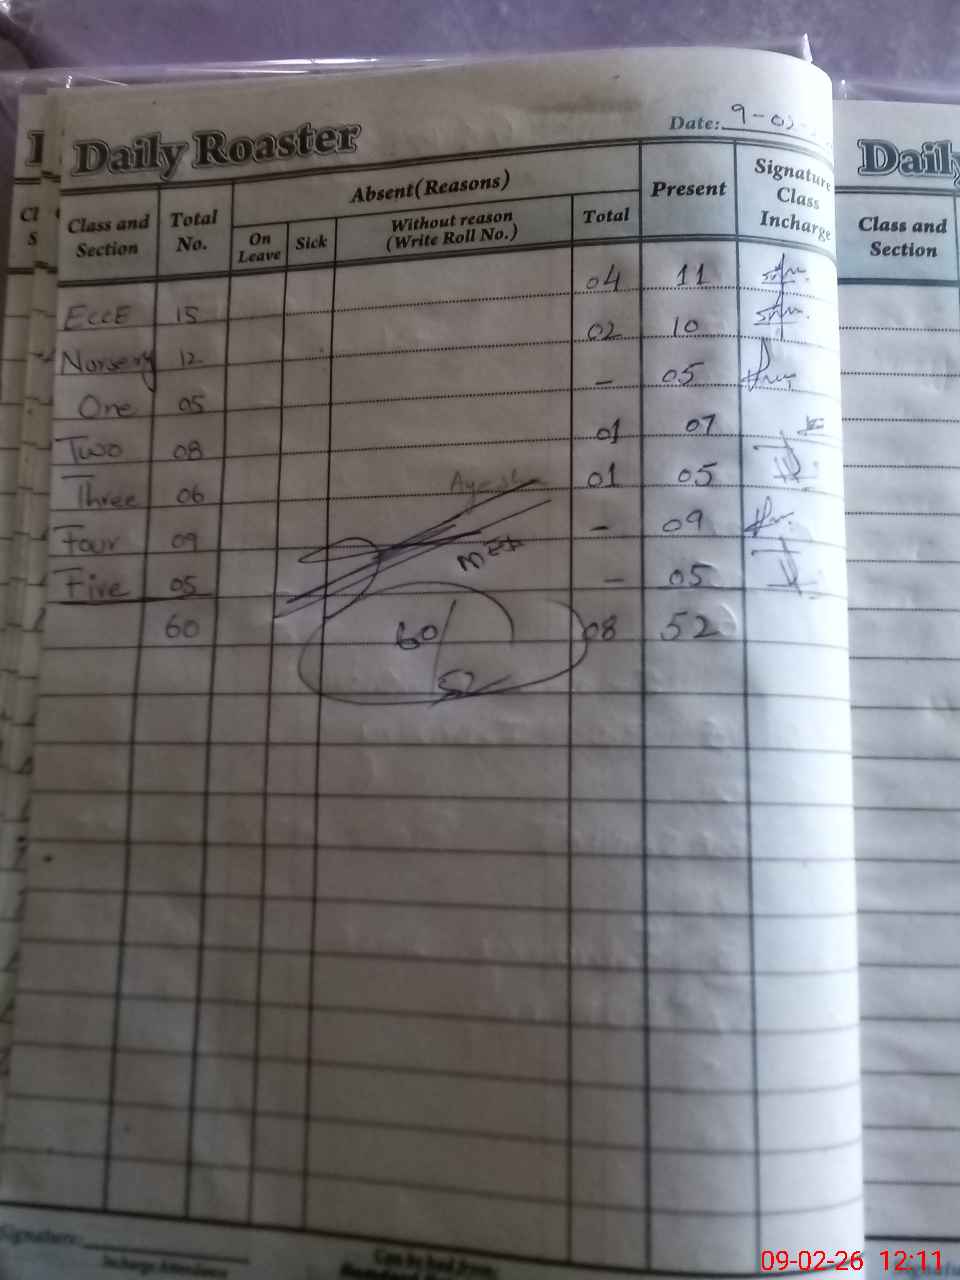 Daily Roaster
Date: 9-02-
Class and Section Total No. Absent(Reasons) Present Signature Class Incharge
On Leave Sick Without reason (Write Roll No.) Total
ECCE 15 04 11
Nursery 12 02 10
One 05 – 05
Two 08 01 07
Three 06 01 05
Four 09 – 09
Five 05 – 05
60 08 52
60/
52
Signature:
Incharge Attendance
Can be had from:
Daily
Class and Section
09-02-26 12:11